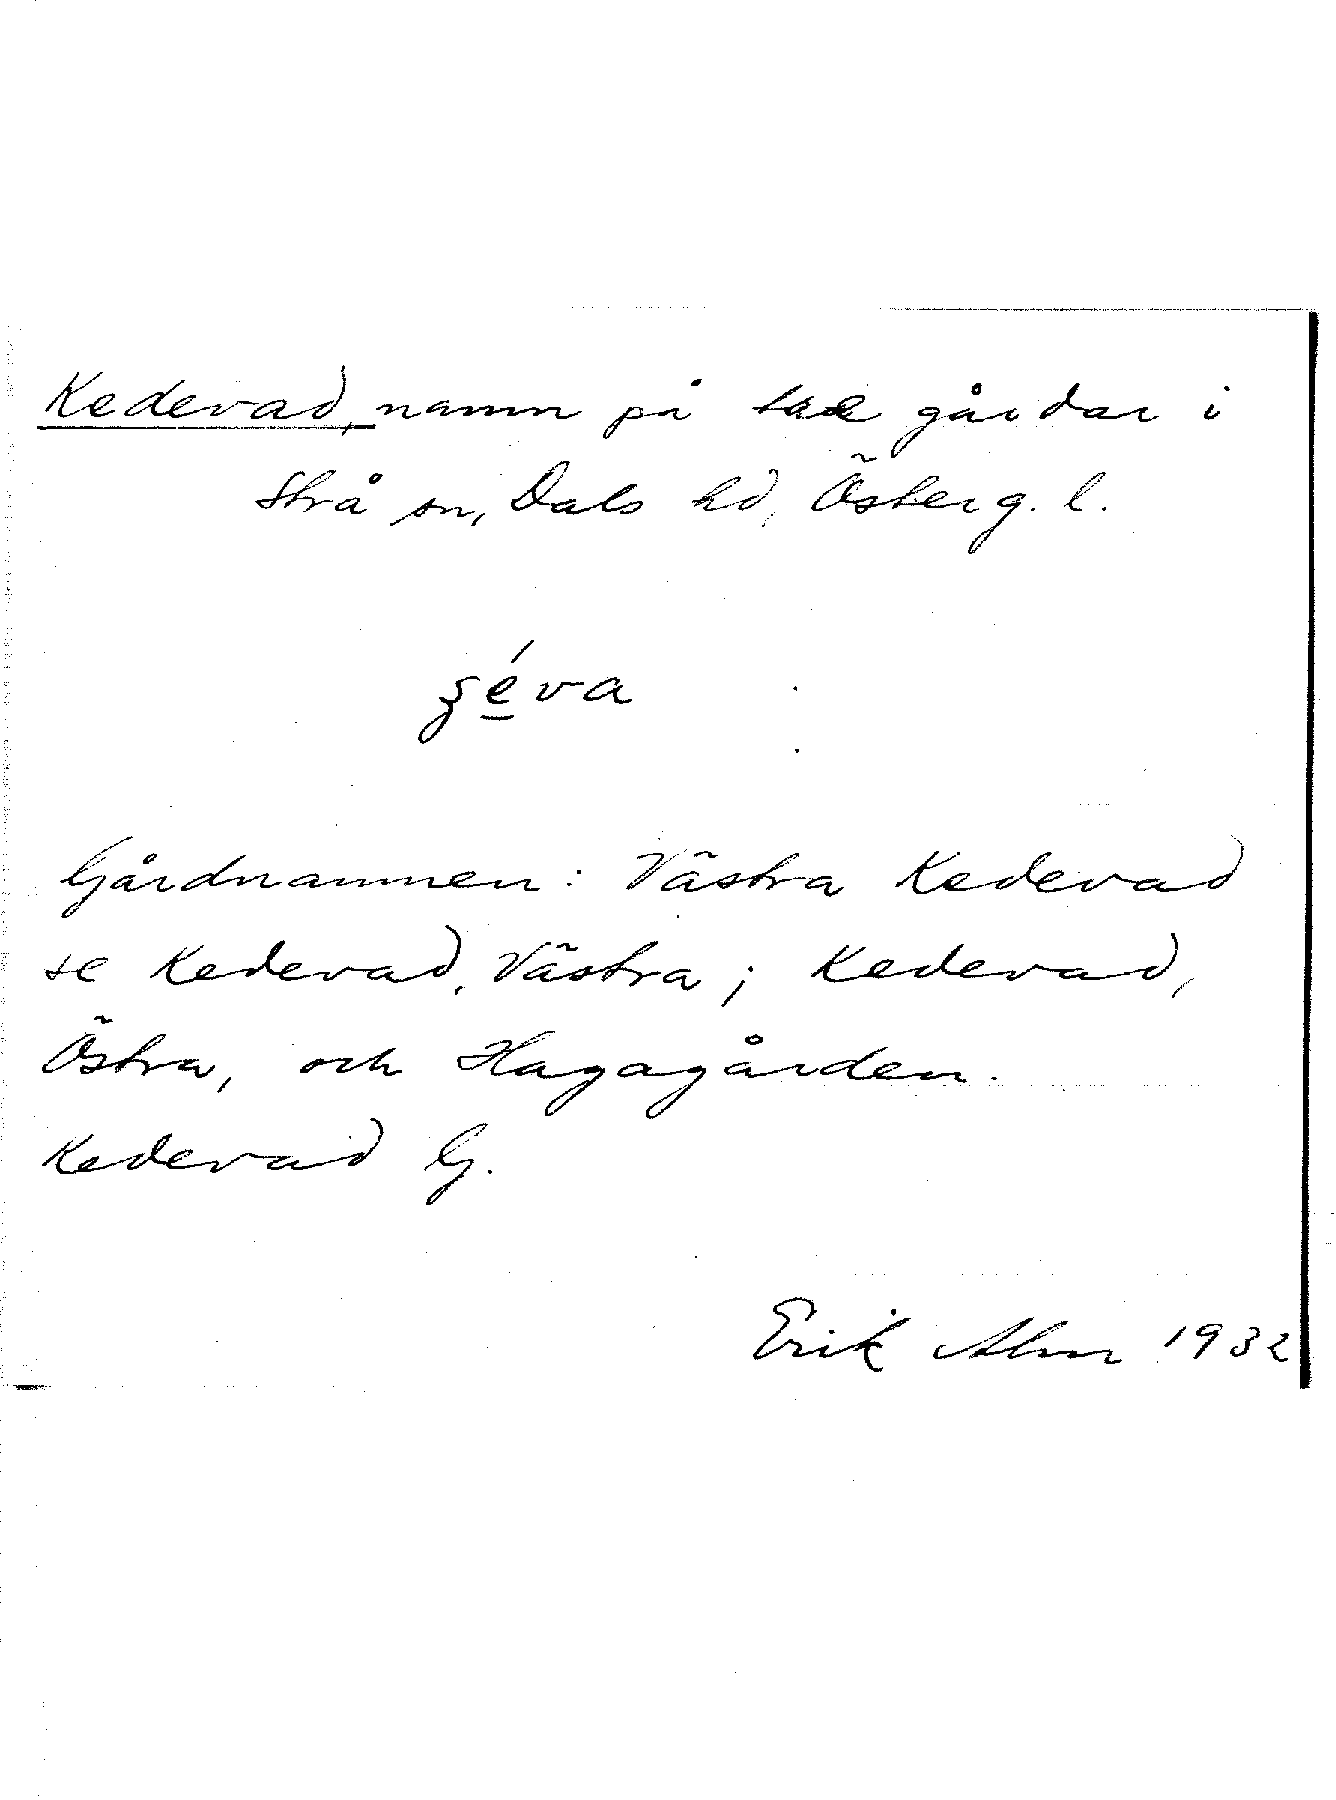 Kedevad, namn på tre gårdar i
Strå sn, Dals hd, Österg. l.
ʂé̲va
Gårdnamnen: Västra Kedevad
se Kedevad, Västra; Kedevad,
Östra, och Hagagården.
Kedevad G.
Erik Alm 1932